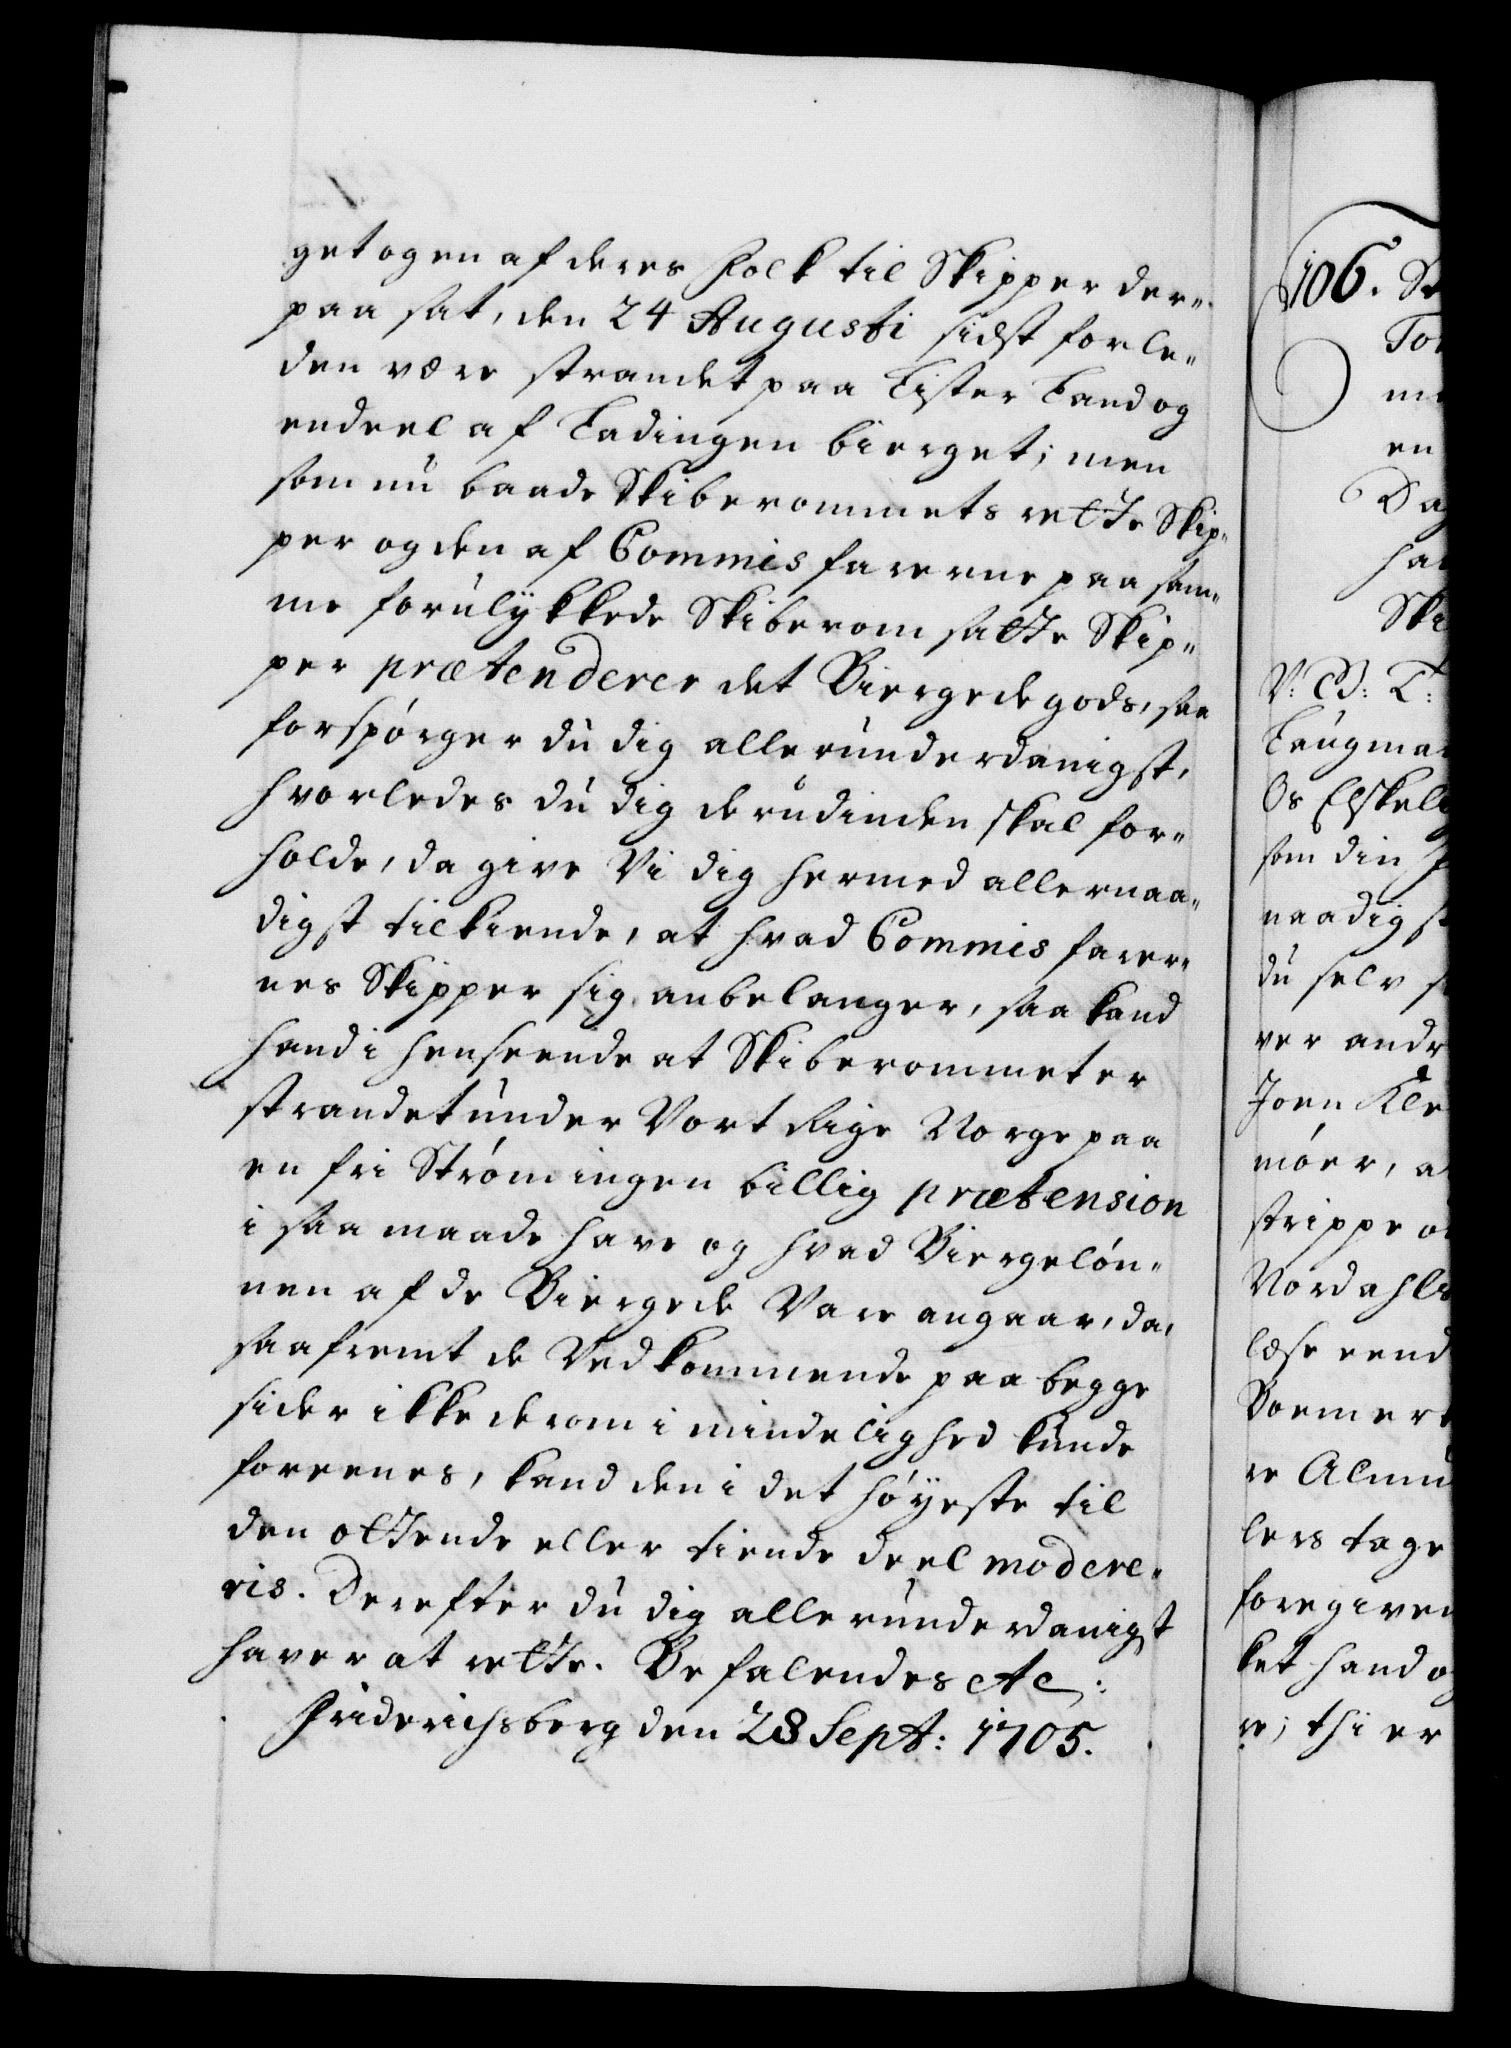 get og en af deres Folk til Skipper der-
paa sat, den 24 Augusti sidst forle-
den være strandet paa Lister Land og
endeel af Ladingen bierget; men
som nu baade Skiberommets rette Skip-
per og den af Commis farerne paa sam-
me forulykkede Skiberom satte Skip-
per prætenderer det Biergede gods, saa
forspørger du dig allerunderdanigst,
hvorledes du dig derudinden skal for-
holde, da give Vi dig hermed allernaa-
digst tilkiende, at hvad Commis farer-
nes Skipper sig anbelanger, saa kand
hand i henseende at Skiberommet er
strandet under Vort Rige Norge paa
en fri Strøm ingen billig prætension
i saa maade have og hvad Biergeløn-
nen af de Biergede Vare angaar, da,
saafremt de Vedkommende paa begge
sider ikke derom i mindelighed kunde
foreenes, kand den i det høyeste til
den ottende eller tiende deel modere-
ris. Derefter du dig allerunderdanigst
haver at rette. Befalendes etc:
Friderichsberg den 28 Sept: 1705.
106.
en
Ski
V: G: T:
Laugma
Os Elskel
som din
naadigst
du selv
ver andr
Joen Kle
møer, a
strippe
Nordahls
læse eend
re Almu
lers tage
foregiven
ket hand og
re; thi er